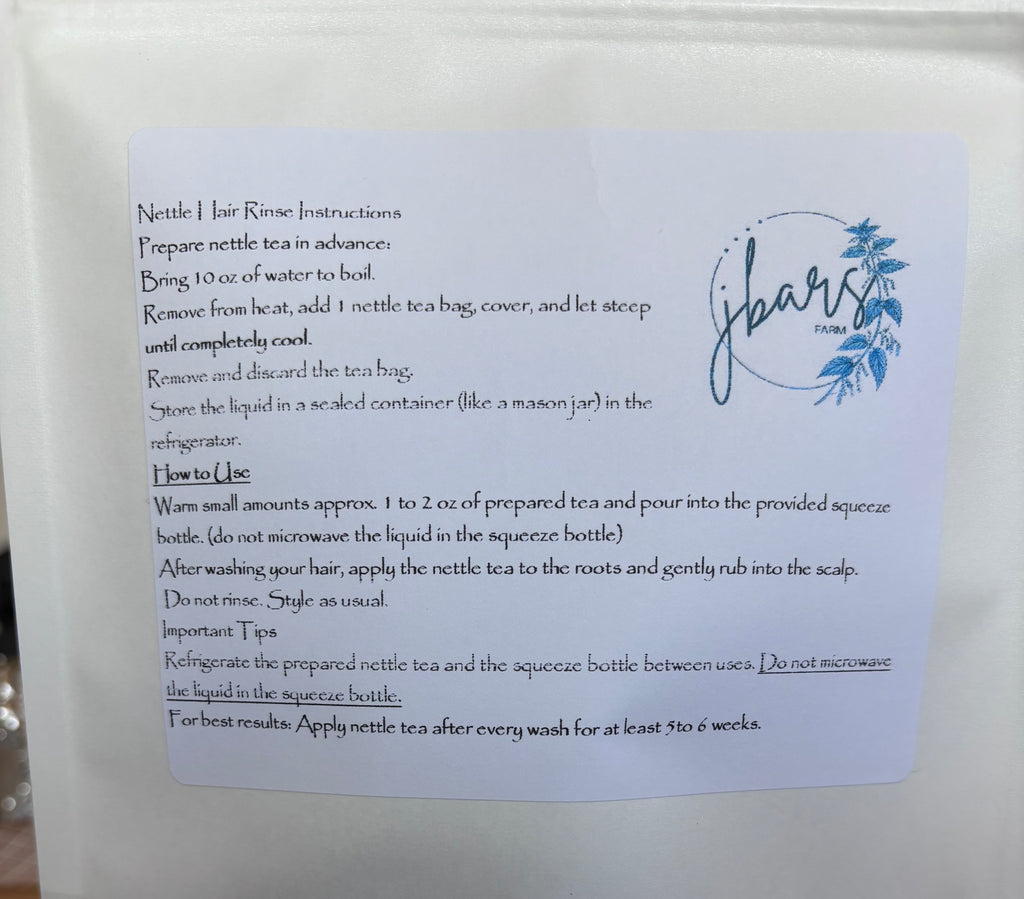 Nettle Hair Rinse Instructions
Prepare nettle tea in advance:
Bring 10 oz of water to boil.
Remove from heat, add 1 nettle tea bag, cover, and let steep
until completely cool.
Remove and discard the tea bag.
Store the liquid in a sealed container (like a mason jar) in the
refrigerator.
jbars
FARM
How to Use
Warm small amounts approx. 1 to 2 oz of prepared tea and pour into the provided squeeze
bottle. (do not microwave the liquid in the squeeze bottle)
After washing your hair, apply the nettle tea to the roots and gently rub into the scalp.
Do not rinse. Style as usual.
Important Tips
Refrigerate the prepared nettle tea and the squeeze bottle between uses. Do not microwave
the liquid in the squeeze bottle.
For best results: Apply nettle tea after every wash for at least 5 to 6 weeks.